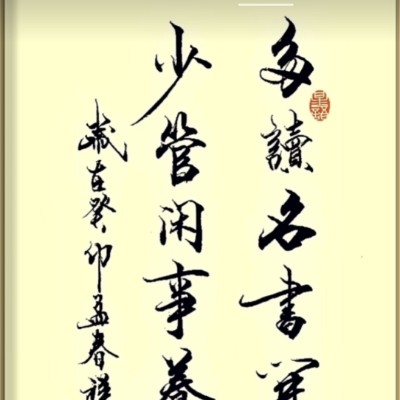 多讀名書開
少管闲事養
歲在癸卯孟春